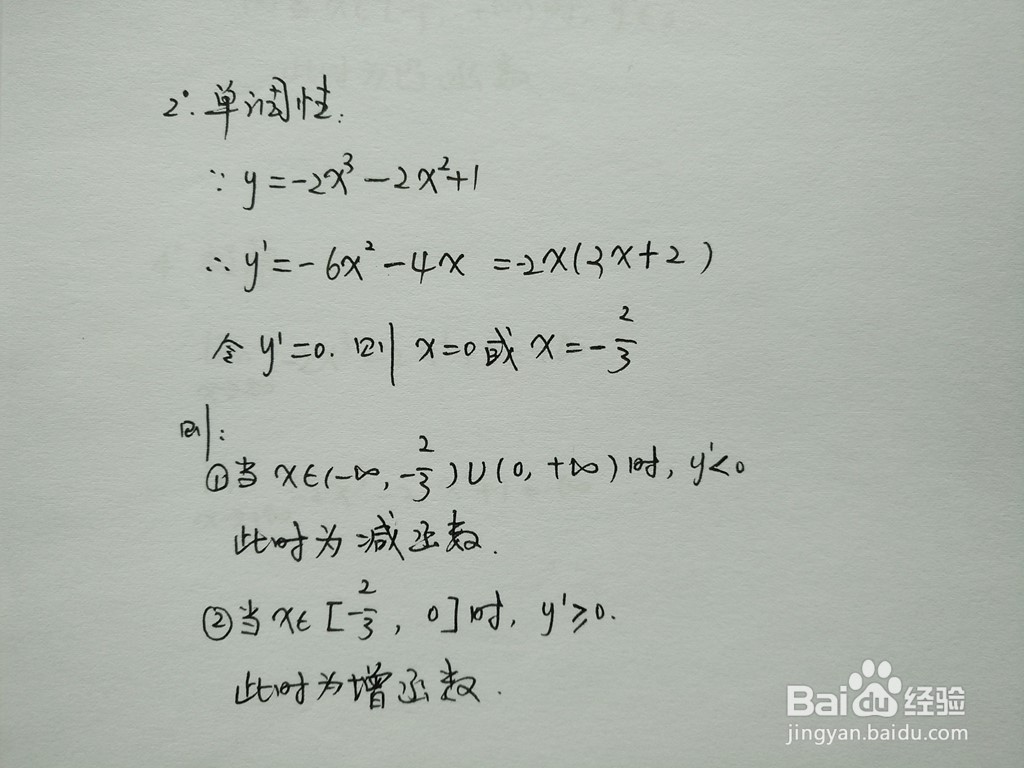 2°. 单调性:
∵ y=-2x³-2x²+1
∴ y'=-6x²-4x =-2x(3x+2)
令 y'=0. 则 x=0或 x=-2/3
则:
①当 x∈(-∞,-2/3)∪(0,+∞)时, y'<0
此时为减函数.
②当 x∈[-2/3, 0]时, y'≥0.
此时为增函数.
Baidu 经验
jingyan.baidu.com